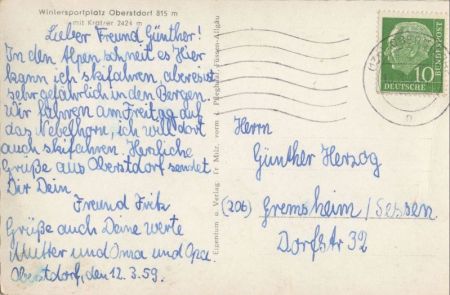 Wintersportplatz Oberstdorf 815 m
mit Kratzer 2424 m
Lieber Freund Günther!
In den Alpen schneit es Hier
kann ich skifahren aber es ist
sehr gefährlich in den Bergen.
Wir fahren am Freitag auf
das Nebelhorn, ich will dort
auch skifahren. Herzliche
Grüße aus Oberstdorf sendet
Dir Dein
Freund Fritz
Grüße auch Deine werte
Mutter und Oma und Opa.
Oberstdorf, den 12.3.59.
Eigentum u. Verlag: Fr. Milz, vorm. Pflegholf, Füssen-Allgäu
10
DEUTSCHE
BUNDESPOST
Herrn
Günther Herzog
(20b) Gremsheim/Seesen
Dorfstr 32